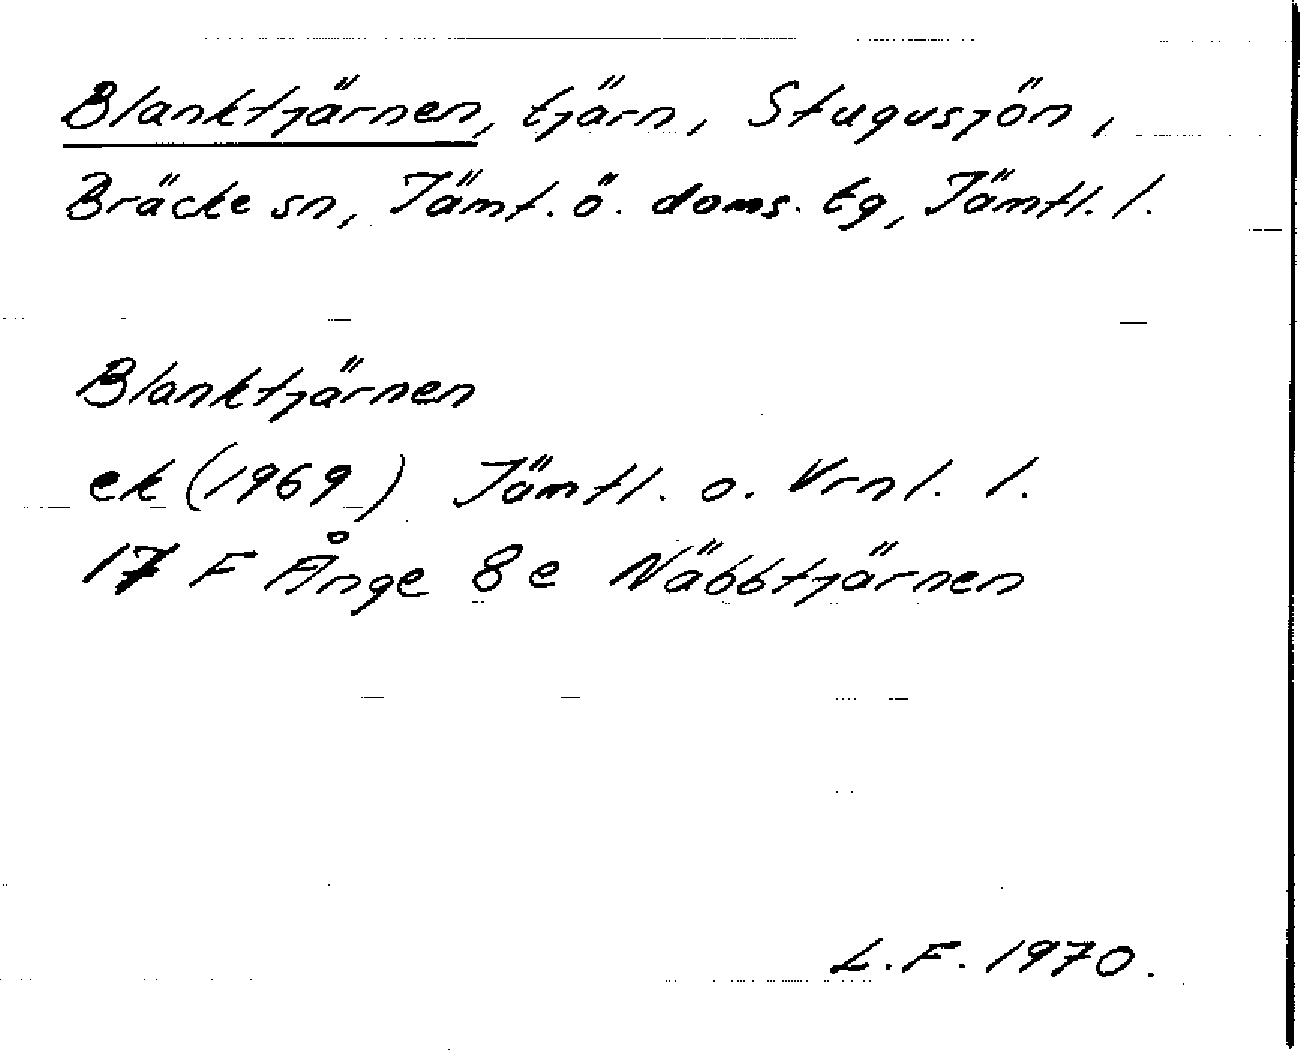 Blanktjärnen, tjärn, Stugusjön,
Bräcke sn, Jämt. ö. doms. tg, Jämtl. l.
Blanktjärnen
ek (1969) Jämtl. o. Vrnl. l.
17 F Ånge 8 e Näbbtjärnen
L.F. 1970.